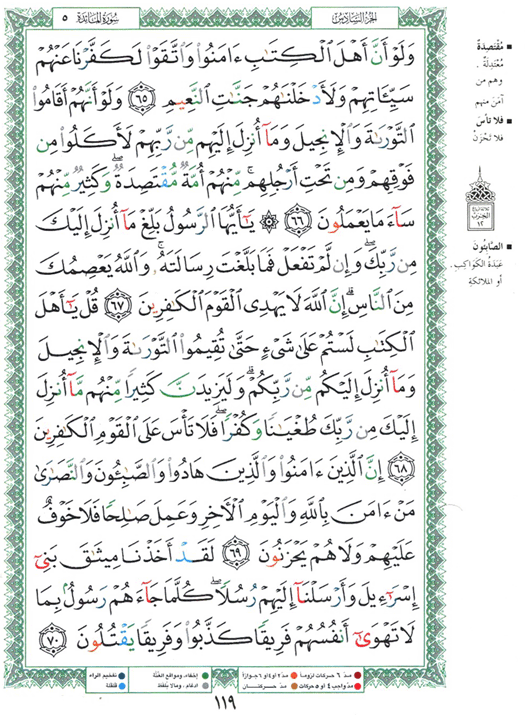 الجزء السادس
سورة المائدة ٥
وَلَوْ أَنَّ أَهْلَ ٱلْكِتَٰبِ ءَامَنُوا۟ وَٱتَّقَوْا۟ لَكَفَّرْنَا عَنْهُمْ
سَيِّـَٔاتِهِمْ وَلَأَدْخَلْنَٰهُمْ جَنَّٰتِ ٱلنَّعِيمِ ٦٥ وَلَوْ أَنَّهُمْ أَقَامُوا۟
ٱلتَّوْرَىٰةَ وَٱلْإِنجِيلَ وَمَآ أُنزِلَ إِلَيْهِم مِّن رَّبِّهِمْ لَأَكَلُوا۟ مِن
فَوْقِهِمْ وَمِن تَحْتِ أَرْجُلِهِم ۚ مِّنْهُمْ أُمَّةٌ مُّقْتَصِدَةٌ ۖ وَكَثِيرٌ مِّنْهُمْ
سَآءَ مَا يَعْمَلُونَ ٦٦ ۞ يَٰٓأَيُّهَا ٱلرَّسُولُ بَلِّغْ مَآ أُنزِلَ إِلَيْكَ
مِن رَّبِّكَ ۖ وَإِن لَّمْ تَفْعَلْ فَمَا بَلَّغْتَ رِسَالَتَهُۥ ۚ وَٱللَّهُ يَعْصِمُكَ
مِنَ ٱلنَّاسِ ۗ إِنَّ ٱللَّهَ لَا يَهْدِى ٱلْقَوْمَ ٱلْكَٰفِرِينَ ٦٧ قُلْ يَٰٓأَهْلَ
ٱلْكِتَٰبِ لَسْتُمْ عَلَىٰ شَىْءٍ حَتَّىٰ تُقِيمُوا۟ ٱلتَّوْرَىٰةَ وَٱلْإِنجِيلَ
وَمَآ أُنزِلَ إِلَيْكُم مِّن رَّبِّكُمْ ۗ وَلَيَزِيدَنَّ كَثِيرًا مِّنْهُم مَّآ أُنزِلَ
إِلَيْكَ مِن رَّبِّكَ طُغْيَٰنًا وَكُفْرًا ۖ فَلَا تَأْسَ عَلَى ٱلْقَوْمِ ٱلْكَٰفِرِينَ
٦٨ إِنَّ ٱلَّذِينَ ءَامَنُوا۟ وَٱلَّذِينَ هَادُوا۟ وَٱلصَّٰبِـُٔونَ وَٱلنَّصَٰرَىٰ
مَنْ ءَامَنَ بِٱللَّهِ وَٱلْيَوْمِ ٱلْءَاخِرِ وَعَمِلَ صَٰلِحًا فَلَا خَوْفٌ
عَلَيْهِمْ وَلَا هُمْ يَحْزَنُونَ ٦٩ لَقَدْ أَخَذْنَا مِيثَٰقَ بَنِىٓ
إِسْرَٰٓءِيلَ وَأَرْسَلْنَآ إِلَيْهِمْ رُسُلًا ۖ كُلَّمَا جَآءَهُمْ رَسُولٌۢ بِمَا
لَا تَهْوَىٰٓ أَنفُسُهُمْ فَرِيقًا كَذَّبُوا۟ وَفَرِيقًا يَقْتُلُونَ ٧٠
■ مُقْتَصِدَةٌ
مُعْتَدِلَةٌ .
وهم من
آمن منهم
■ فلا تأسَ
فلا تَحْزَنْ
الحزب
١٢
■ الصَّابئُونَ
عَبَدَةُ الكَواكِبِ .
أو الملائكةِ
مدّ ٦ حركات لزوماً
مدّ ٢ أو ٤ أو ٦ جوازاً
مدّ واجب ٤ أو ٥ حركات
مدّ حركتان
إخفاء، ومواقع الغُنَّة
ادغام ، وما لا يلفظ
تفخيم الراء
قلقلة
١١٩